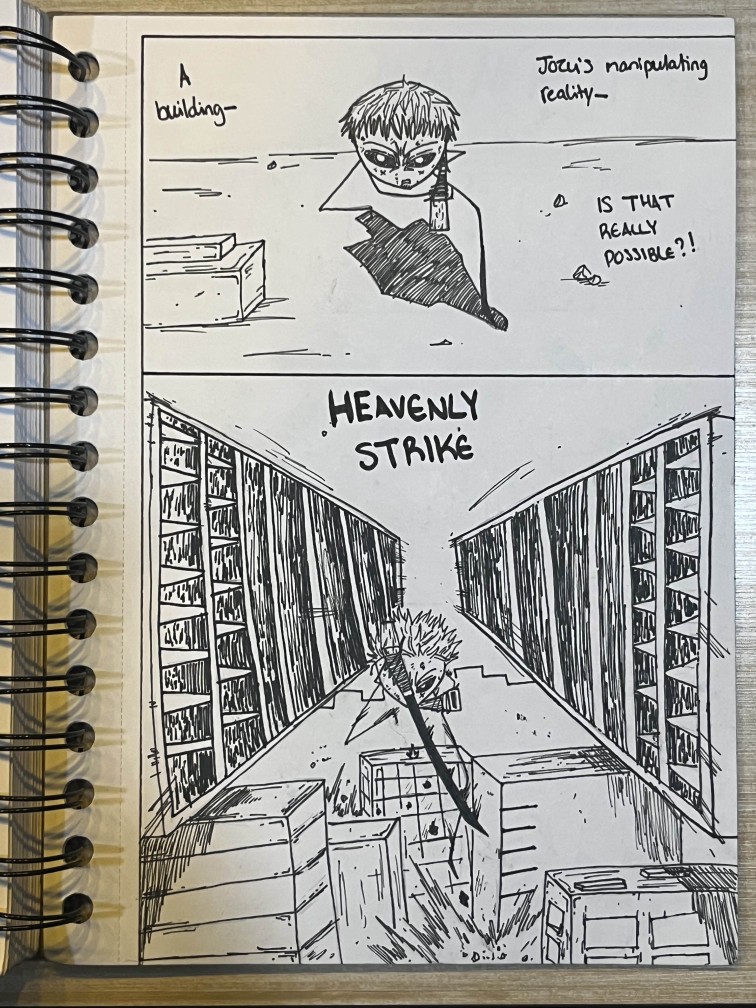 A
building—
Jozu's manipulating
reality—
IS THAT
REALLY
POSSIBLE?!
HEAVENLY
STRIKE